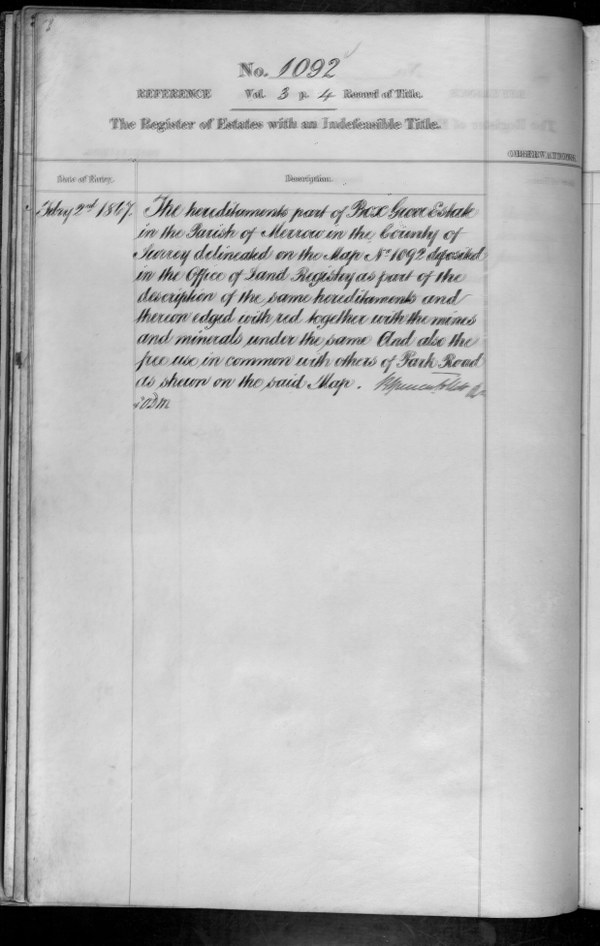 No. 1092
REFERENCE Vol. 3 p. 4 Record of Title.
The Register of Estates with an Indefeasible Title.
OBSERVATIONS.
Date of Entry. Description.
Feby 2nd 1867. The hereditaments part of Box Grove Estate
in the Parish of Merrow in the County of
Surrey delineated on the Map No 1092 deposited
in the Office of Land Registry as part of the
description of the same hereditaments and
thereon edged with red together with the mines
and minerals under the same And also the
free use in common with others of Park Road
as shewn on the said Map.